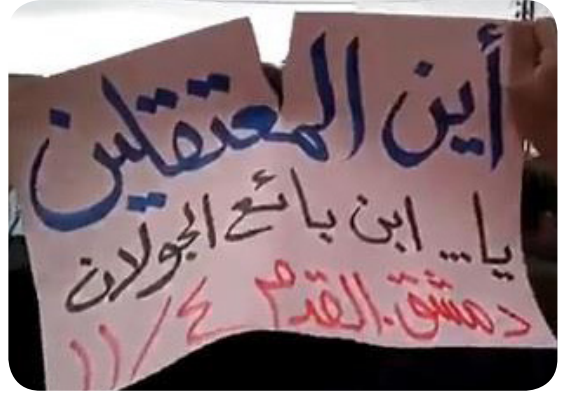 أين المعتقلين
يا... ابن بائع الجولان
دمشق.القدم ٤/١١